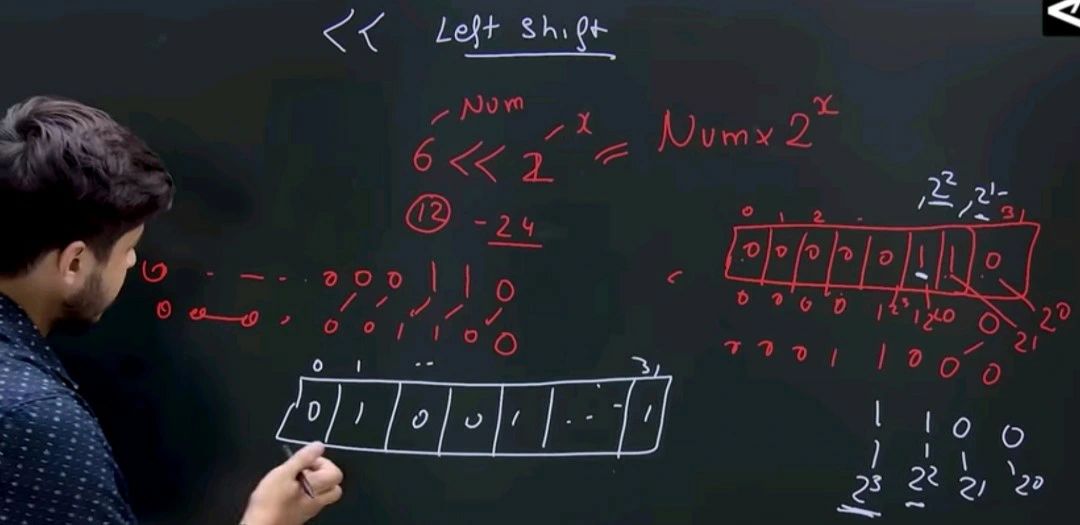 << Left Shift
Num
x
6 << 2 = Num x 2^x
12 - 24
2^2, 2^1
0 1 2 . 31
0 0 0 0 0 1 1 0
0 0 0 0 1 2^3 1 2^2 0 0 2^1 2^0
0 - - - . . 0 0 0 1 1 0
0 0 , 0 0 1 1 0 0
0 0 0 1 1 0 0 0
0 1 .. 31
0 1 0 0 1 ... 1
1 1 0 0
2^3 2^2 2^1 2^0